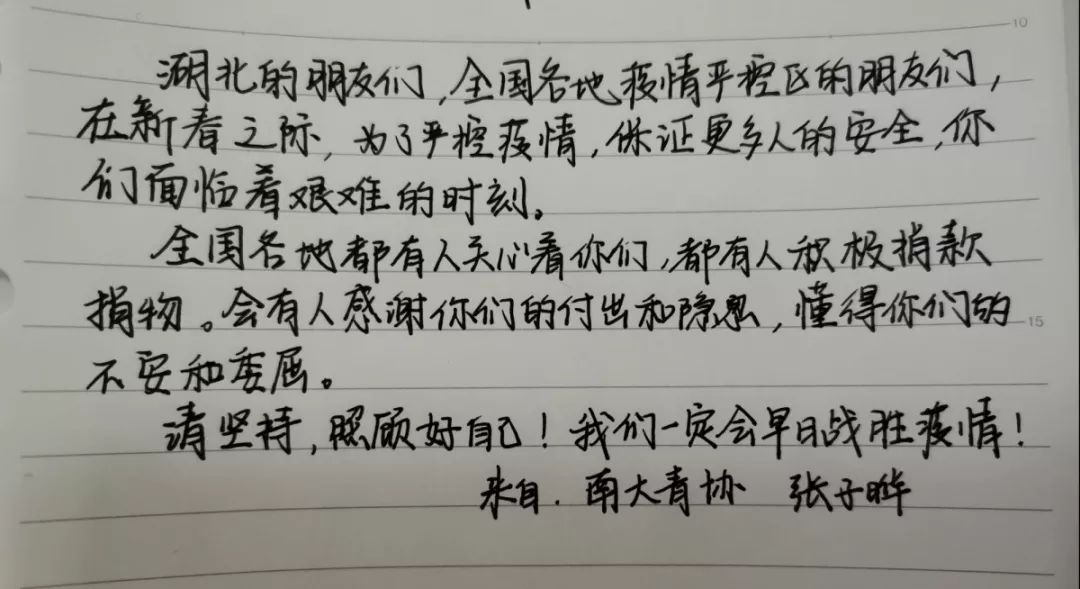 10
湖北的朋友们,全国各地疫情严控区的朋友们,
在新春之际,为了严控疫情,保证更多人的安全,你
们面临着艰难的时刻。
全国各地都有人关心着你们,都有人积极捐款
捐物。会有人感谢你们的付出和隐忍,懂得你们的
15
不安和委屈。
请坚持,照顾好自己!我们一定会早日战胜疫情!
来自.南大青协 张子晔